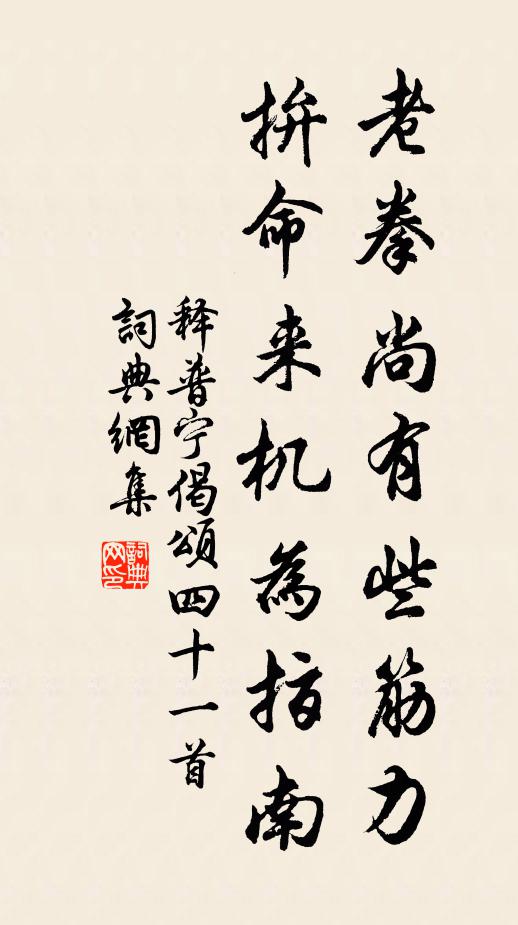 老拳尚有些筋力
拚命来机為指南
释普宁偈頌四十一首
詞典網集
詞典網印